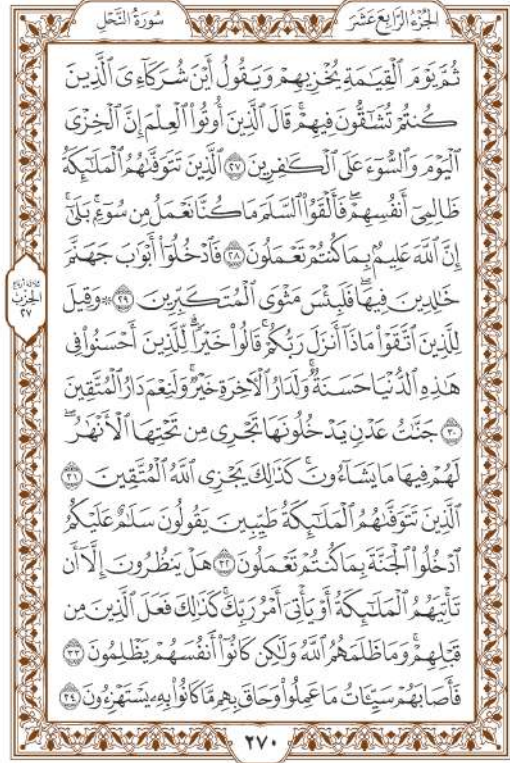 الجُزْءُ الرَّابِعَ عَشَرَ
سُورَةُ النَّحْلِ
ثُمَّ يَوْمَ ٱلْقِيَـٰمَةِ يُخْزِيهِمْ وَيَقُولُ أَيْنَ شُرَكَآءِىَ ٱلَّذِينَ
كُنتُمْ تُشَـٰٓقُّونَ فِيهِمْ ۚ قَالَ ٱلَّذِينَ أُوتُوا۟ ٱلْعِلْمَ إِنَّ ٱلْخِزْىَ
ٱلْيَوْمَ وَٱلسُّوٓءَ عَلَى ٱلْكَـٰفِرِينَ ٢٧ ٱلَّذِينَ تَتَوَفَّىٰهُمُ ٱلْمَلَـٰٓئِكَةُ
ظَالِمِىٓ أَنفُسِهِمْ ۖ فَأَلْقَوُا۟ ٱلسَّلَمَ مَا كُنَّا نَعْمَلُ مِن سُوٓءٍۭ ۚ بَلَىٰٓ
إِنَّ ٱللَّهَ عَلِيمٌۢ بِمَا كُنتُمْ تَعْمَلُونَ ٢٨ فَٱدْخُلُوٓا۟ أَبْوَٰبَ جَهَنَّمَ
خَـٰلِدِينَ فِيهَا ۖ فَلَبِئْسَ مَثْوَى ٱلْمُتَكَبِّرِينَ ٢٩ ۞ وَقِيلَ
لِلَّذِينَ ٱتَّقَوْا۟ مَاذَآ أَنزَلَ رَبُّكُمْ ۚ قَالُوا۟ خَيْرًا ۗ لِّلَّذِينَ أَحْسَنُوا۟ فِى
هَـٰذِهِ ٱلدُّنْيَا حَسَنَةٌ ۚ وَلَدَارُ ٱلْـَٔاخِرَةِ خَيْرٌ ۚ وَلَنِعْمَ دَارُ ٱلْمُتَّقِينَ
٣٠ جَنَّـٰتُ عَدْنٍ يَدْخُلُونَهَا تَجْرِى مِن تَحْتِهَا ٱلْأَنْهَـٰرُ ۖ
لَهُمْ فِيهَا مَا يَشَآءُونَ ۚ كَذَٰلِكَ يَجْزِى ٱللَّهُ ٱلْمُتَّقِينَ ٣١
ٱلَّذِينَ تَتَوَفَّىٰهُمُ ٱلْمَلَـٰٓئِكَةُ طَيِّبِينَ ۙ يَقُولُونَ سَلَـٰمٌ عَلَيْكُمُ
ٱدْخُلُوا۟ ٱلْجَنَّةَ بِمَا كُنتُمْ تَعْمَلُونَ ٣٢ هَلْ يَنظُرُونَ إِلَّآ أَن
تَأْتِيَهُمُ ٱلْمَلَـٰٓئِكَةُ أَوْ يَأْتِىَ أَمْرُ رَبِّكَ ۚ كَذَٰلِكَ فَعَلَ ٱلَّذِينَ مِن
قَبْلِهِمْ ۚ وَمَا ظَلَمَهُمُ ٱللَّهُ وَلَـٰكِن كَانُوٓا۟ أَنفُسَهُمْ يَظْلِمُونَ ٣٣
فَأَصَابَهُمْ سَيِّـَٔاتُ مَا عَمِلُوا۟ وَحَاقَ بِهِم مَّا كَانُوا۟ بِهِۦ يَسْتَهْزِءُونَ ٣٤
ثلاثة أرباع
الحزب
٢٧
٢٧٠